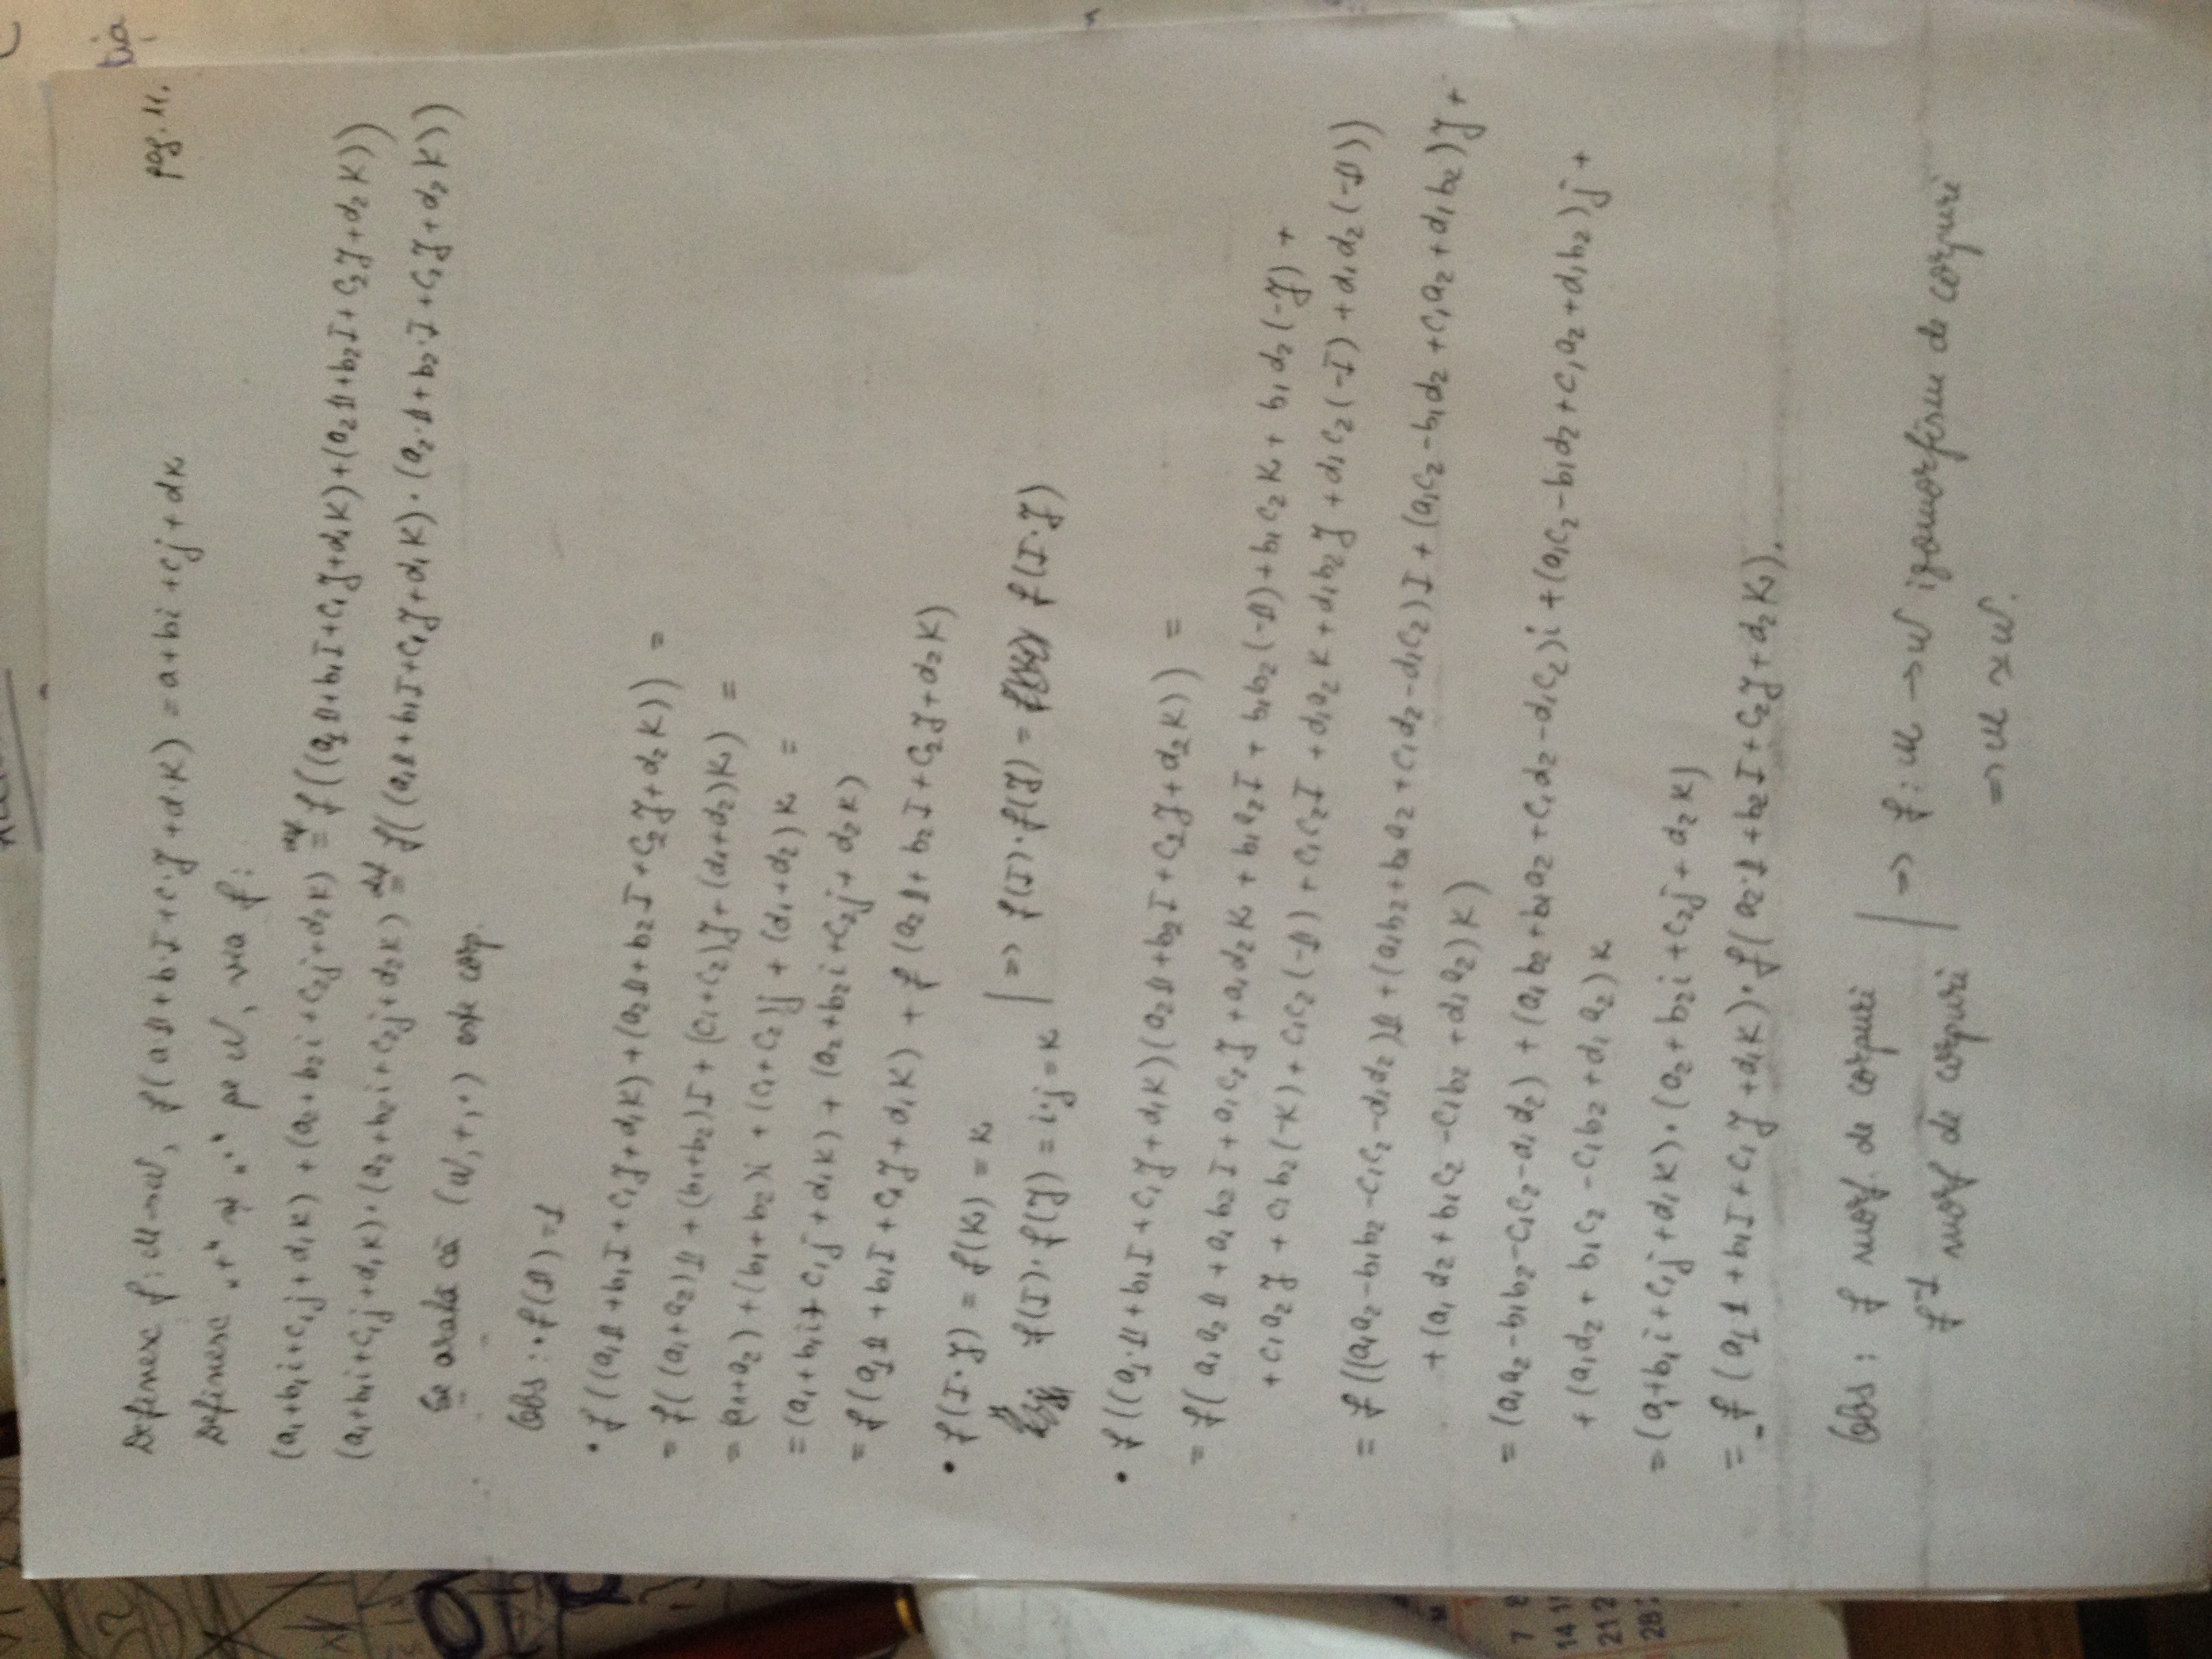 pag. 11.
Definesc f: M→N, f(a·1+b·I+c·J+d·K) = a+bi+cj+dk
Definesc „+" și „·" pe N, via f:
(a₁+b₁i+c₁j+d₁k) + (a₂+b₂i+c₂j+d₂k) def= f((a₁1+b₁I+c₁J+d₁K)+(a₂1+b₂I+c₂J+d₂K))
(a₁+b₁i+c₁j+d₁k)·(a₂+b₂i+c₂j+d₂k) def= f((a₁1+b₁I+c₁J+d₁K)·(a₂·1+b₂·I+c₂J+d₂K))
Se arată că (N,+,·) este corp.
Obs: • f(1)=1
• f((a₁1+b₁I+c₁J+d₁K)+(a₂1+b₂I+c₂J+d₂K)) =
= f((a₁+a₂)1+(b₁+b₂)I+(c₁+c₂)J+(d₁+d₂)K) =
= (a₁+a₂)+(b₁+b₂)i+(c₁+c₂)j+(d₁+d₂)k =
= (a₁+b₁i+c₁j+d₁k)+(a₂+b₂i+c₂j+d₂k)
= f(a₁1+b₁I+c₁J+d₁K) + f(a₂1+b₂I+c₂J+d₂K)
• f(I·J) = f(K) = k
f(I)·f(J) = i·j = k | => f(I)·f(J) = f(I·J)
• f((a₁·1+b₁I+c₁J+d₁K)(a₂1+b₂I+c₂J+d₂K)) =
= f(a₁a₂1+a₁b₂I+a₁c₂J+a₁d₂K+b₁a₂I+b₁b₂(-1)+b₁c₂K+b₁d₂(-J)+
+c₁a₂J+c₁b₂(-K)+c₁c₂(-1)+c₁c₂I+d₁a₂K+d₁b₂J+d₁c₂(-I)+d₁d₂(-1))
= f((a₁a₂-b₁b₂-c₁c₂-d₁d₂)1+(a₁b₂+b₁a₂+c₁d₂-d₁c₂)I+(a₁c₂-b₁d₂+c₁a₂+d₁b₂)J+
+(a₁d₂+b₁c₂-c₁b₂+d₁a₂)K)
= (a₁a₂-b₁b₂-c₁c₂-d₁d₂)+(a₁b₂+b₁a₂+c₁d₂-d₁c₂)i+(a₁c₂-b₁d₂+c₁a₂+d₁b₂)j+
+(a₁d₂+b₁c₂-c₁b₂+d₁a₂)k
= (a₁+b₁i+c₁j+d₁k)·(a₂+b₂i+c₂j+d₂k)
= f(a₁1+b₁I+c₁J+d₁K)·f(a₂·1+b₂I+c₂J+d₂K).
Obs: f morf. de corpuri
f⁻¹ morf de corpuri | => f: M→N izomorfism de corpuri
=> M ≃ N.
7 8
14 1
21 2
28